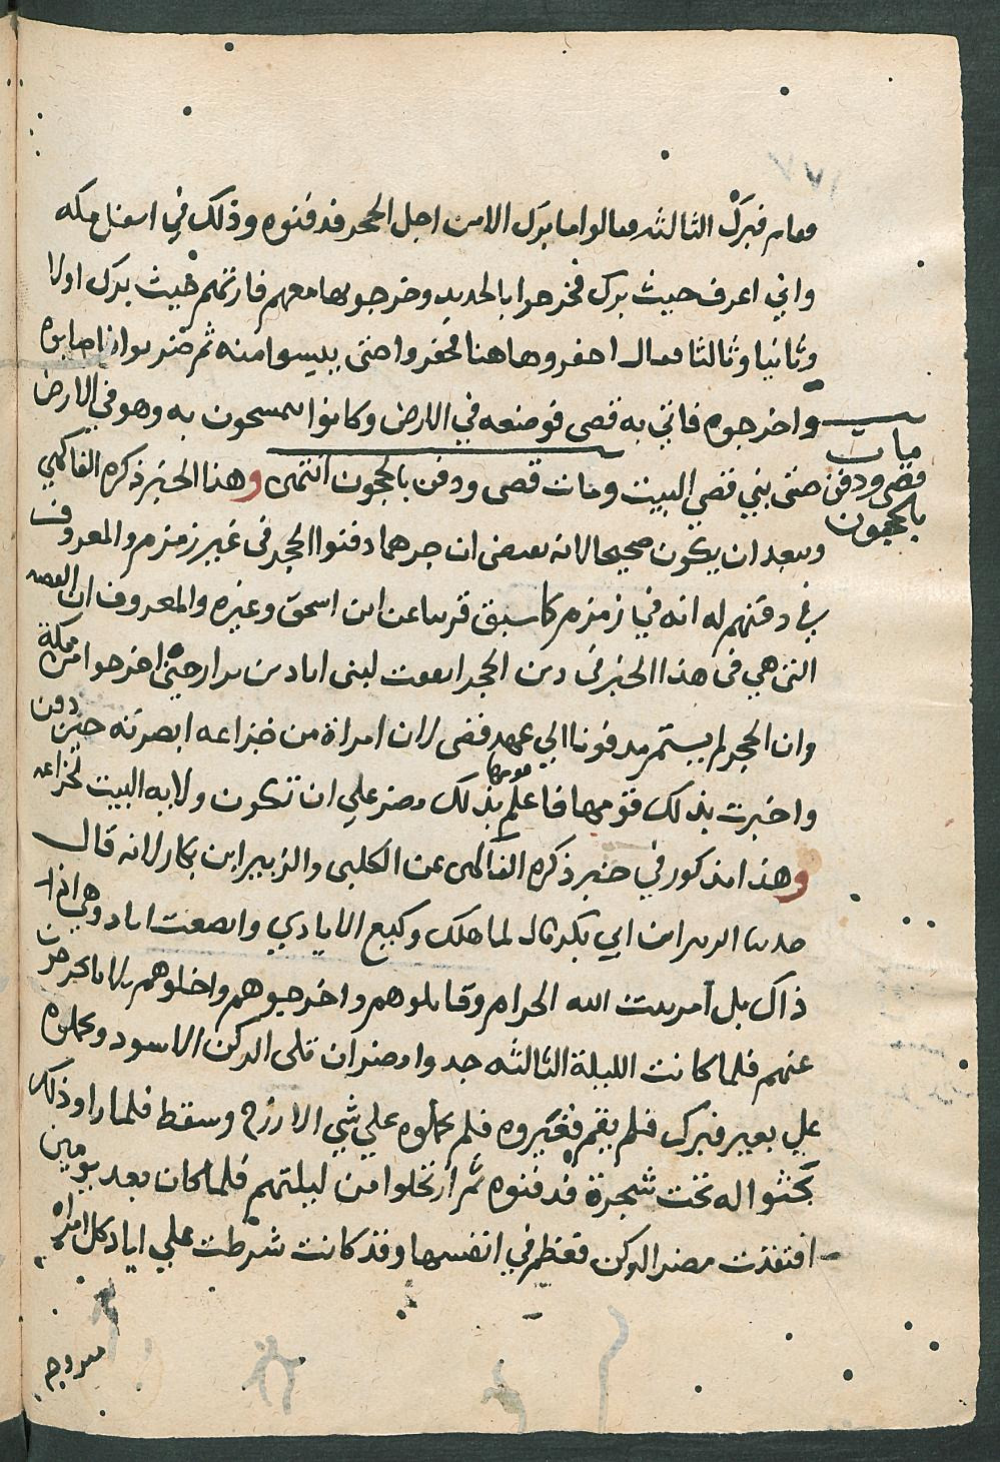 فقام فبرك الثالثه فقالوا ما برك الا من اجل الحجر فدفنوه وذلك في اسفل مكه
واني اعرف حيث برك فخرجوا بالحديد وخرجوا بها معهم فارتهم حيث برك اولا
وثانيا وثالثا فقال احفروها هنا فحفروا حتى يييسوا منه ثم ضربوا فاصابوه
واخرجوه فاتي به قصى فوضعه في الارض وكانوا يتمسحون به وهو في الارض
حتى بني قصي البيت ومات قصى ودفن بالحجون انتهى وهذا الخبر ذكره الفاكهي
مات
قصى ودفن
بالحجون
ويبعد ان يكون صحيحا لانه يقتضى ان جرهما دفنوا الحجر فى غير زمزم والمعروف
في دفنهم له انه في زمزم كما سبق قريبا عن ابن اسحق وغيره والمعروف ان القصه
التى هي فى هذا الخبر فى دفن الحجر اتفقت لبنى اياد بن نزار حين اخرجوا من مكة
وان الحجر لم يستمر مدفونا الي عهد قصى لان امراة من خزاعه ابصرته حين دفن
واخبرت بذلك قومها فاعلم قومها بذلك مضر علي ان تكون ولايه البيت لخزاعه
وهذا مذكور في خبر ذكره الفاكهى عن الكلبى والزبير ابن بكار لانه قال
حدثنا الزبير ابن ابي بكر قال لما هلك وكيع الايادي واتضعت اياد وهي اذا
ذاك بلي امر بيت الله الحرام وقاتلوهم واخرجوهم واجلوهم ثلاثا يخرجون
عنهم فلما كانت الليلة الثالثه حدوا مضر ان تلى الركن الاسود وحملوه
علي بعير فبرك فلم يقم فغيروه فلم يحملوه علي شي الا رزح وسقط فلما راو ذلك
بحثوا له تحت شجرة فدفنوه ثم ارتحلوا من ليلتهم فلما كان بعد يومين
افتقدت مضر الركن فعظم في انفسها وقد كانت شرطت علي اياد كل امراه